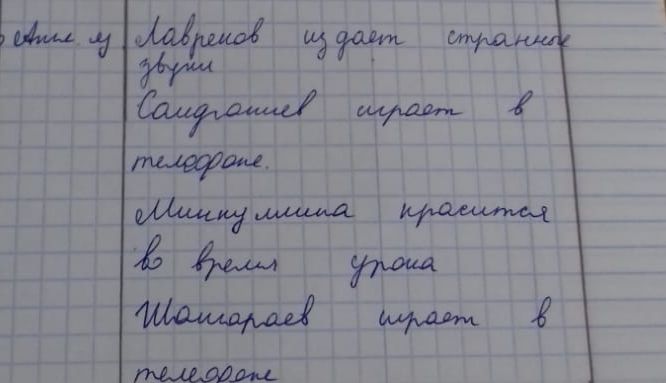 Англ. яз Лавренов издает странные
звуки
Саидгалиев играет в
телефоне.
Миннуллина красится
во время урока
Шагараев играет в
телефоне